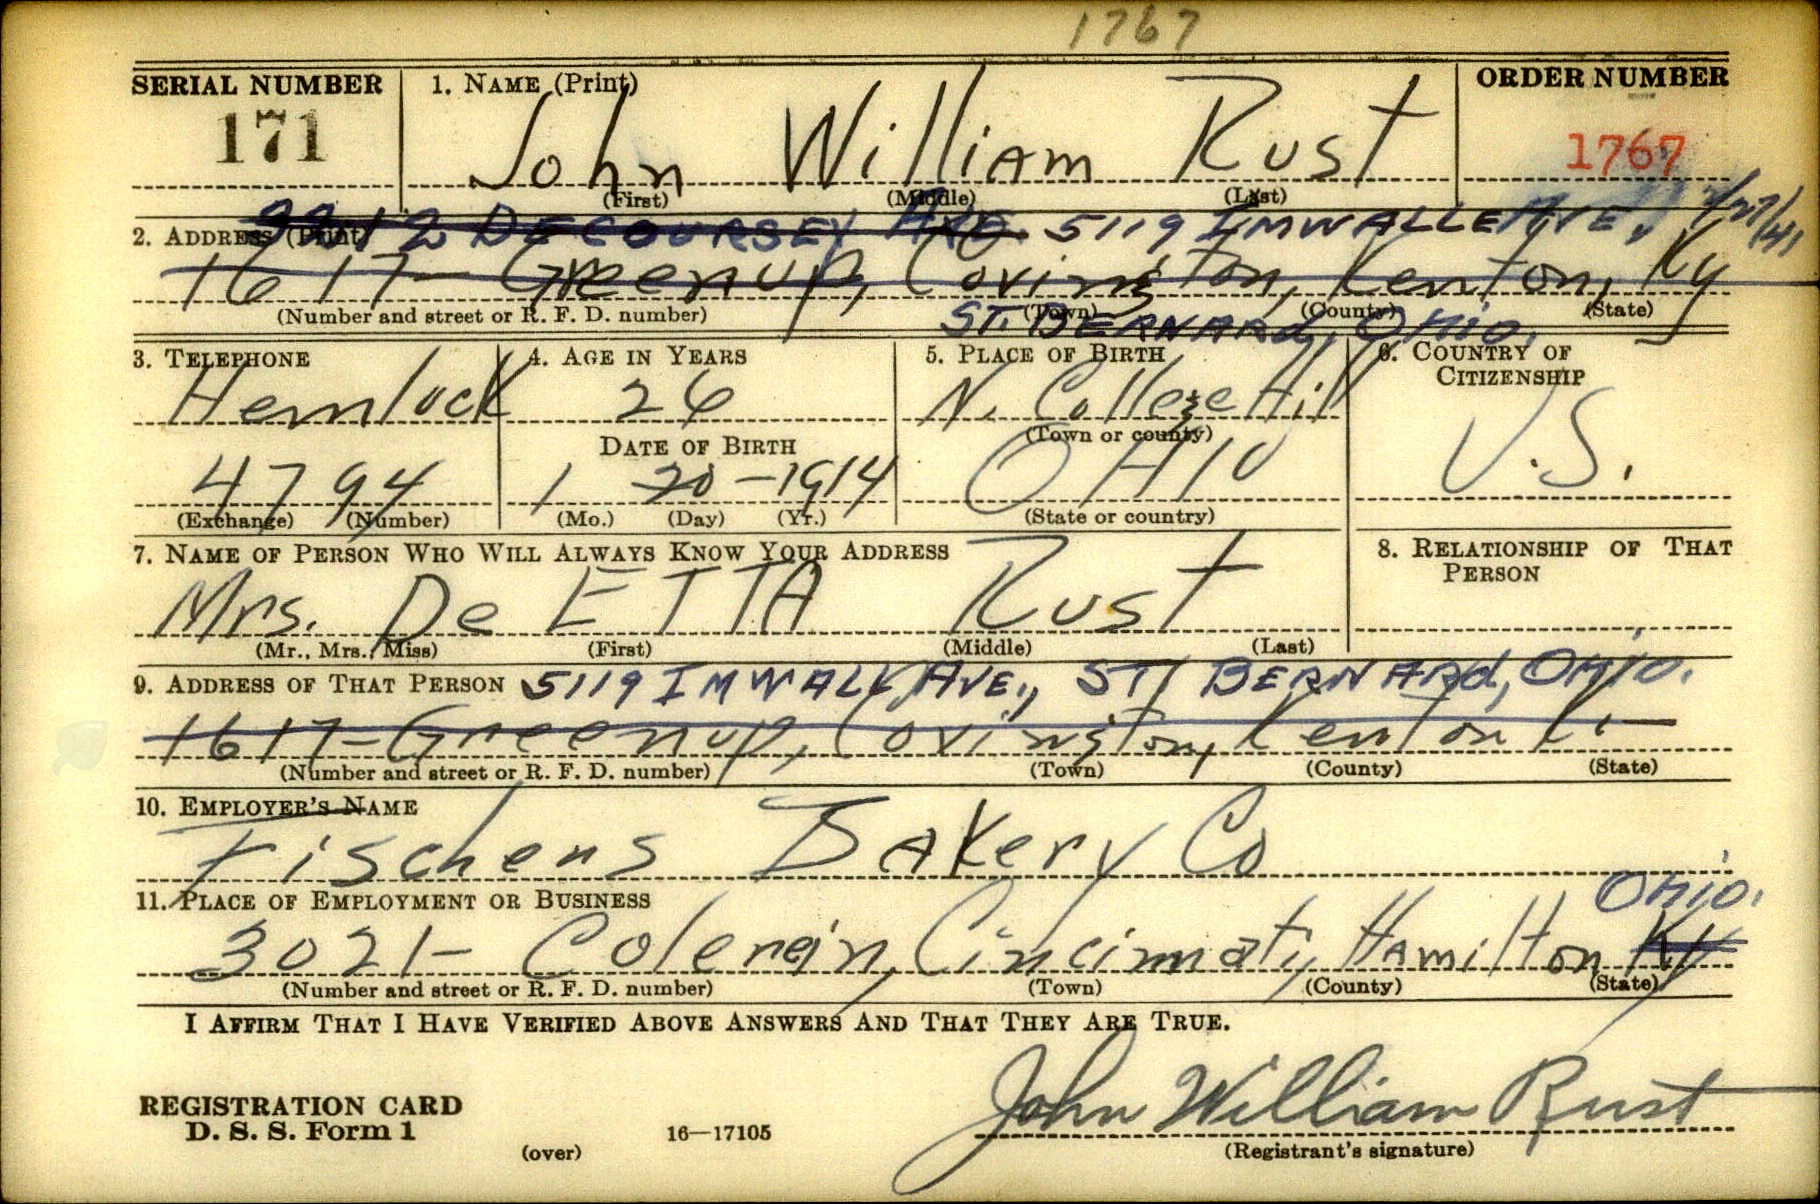 1767
SERIAL NUMBER 1. NAME (Print) ORDER NUMBER
171 John William Rust 1767
(First) (Middle) (Last)
DECOURSEY AVE. 5119 IMWALLE AVE.,
2. ADDRESS (Print)
1617 - Greenup, Covington, Kenton, Ky
(Number and street or R. F. D. number) (Town) (County) (State)
ST. BERNARd, OHiO.
3. TELEPHONE 4. AGE IN YEARS 5. PLACE OF BIRTH 6. COUNTRY OF CITIZENSHIP
Hemlock 26 N. College Hill U.S.
DATE OF BIRTH (Town or county)
4794 1 20 - 1914 OHIO
(Exchange) (Number) (Mo.) (Day) (Yr.) (State or country)
7. NAME OF PERSON WHO WILL ALWAYS KNOW YOUR ADDRESS 8. RELATIONSHIP OF THAT PERSON
Mrs. De ETTA Rust
(Mr., Mrs., Miss) (First) (Middle) (Last)
9. ADDRESS OF THAT PERSON 5119 IMWALL AVE., ST. BERNARd, OHiO.
1617 - Greenup, Covington, Kenton
(Number and street or R. F. D. number) (Town) (County) (State)
10. EMPLOYER'S NAME
Fischers Bakery Co
11. PLACE OF EMPLOYMENT OR BUSINESS Ohio.
3021 - Colerain, Cincinnati, Hamilton Ky
(Number and street or R. F. D. number) (Town) (County) (State)
I AFFIRM THAT I HAVE VERIFIED ABOVE ANSWERS AND THAT THEY ARE TRUE.
John William Rust
REGISTRATION CARD
D. S. S. Form 1 16—17105
(over) (Registrant's signature)